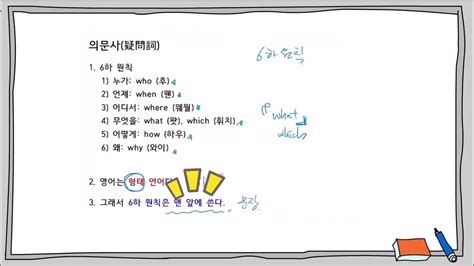 의문사(疑問詞)
6하 원칙
1. 6하 원칙
1) 누가: who (후)
2) 언제: when (웬)
3) 어디서: where (웨월)
4) 무엇을: what (왓), which (휘치)
what
5) 어떻게: how (하우)
which
6) 왜: why (와이)
2. 영어는 형태 언어다
3. 그래서 6하 원칙은 맨 앞에 쓴다.